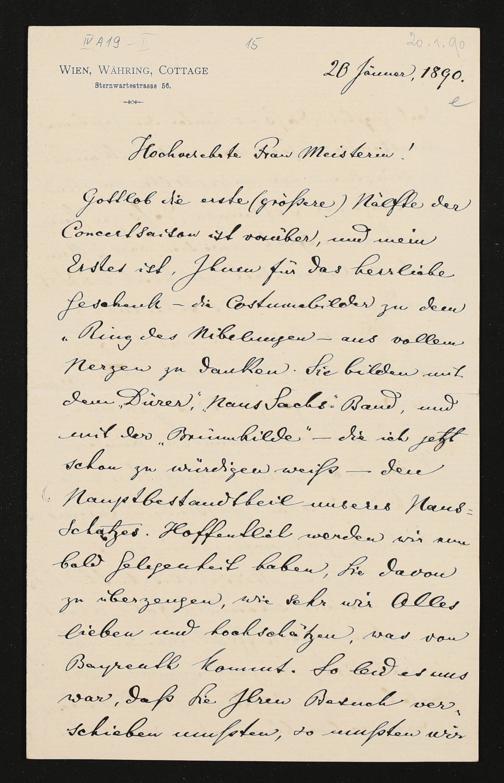 IV A 19 - I
15
20.1.90
WIEN, WÄHRING, COTTAGE
Sternwartestrasse 56.
20 Jänner, 1890.
Hochverehrte Frau Meisterin!
Gottlob die erste (größere) Hälfte der
Concertsaison ist vorüber, und mein
Erstes ist, Ihnen für das herrliche
Geschenk – die Costumebilder zu dem
„Ring des Nibelungen – aus vollem
Herzen zu danken. Sie bilden mit
dem „Dürer“, „Hans Sachs“ Band, und
mit der „Brünnhilde“ – die ich jetzt
schon zu würdigen weiß – den
Hauptbestandtheil unseres Haus=
Schatzes. Hoffentlich werden wir nun
bald Gelegenheit haben, Sie davon
zu überzeugen, wie sehr wir Alles
lieben und hochschätzen, was von
Bayreuth kommt. So leid es uns
war, daß Sie Ihren Besuch ver-
schieben mußten, so mußten wir